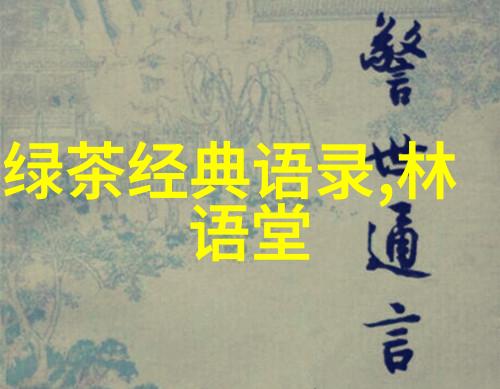 绿茶经典语录,林
语堂
警世通言